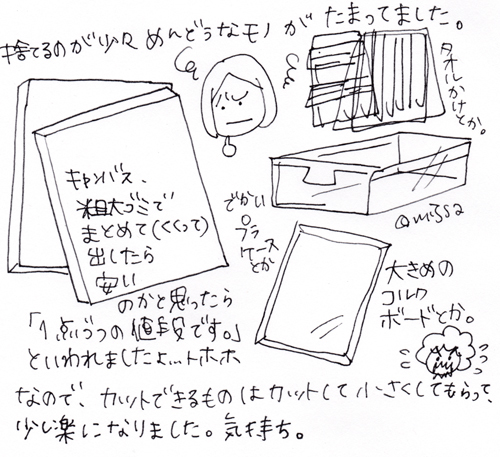 捨てるのが少々めんどうなモノがたまってました。
タオルかけとか。
キャンバス、
粗大ゴミで
まとめて(くくって)
出したら
安い
のかと思ったら
「1点づつの値段です。」
といわれましたよ...トホホ
でかい
プラ
ケースとか
@mi3sa
大きめの
コルク
ボードとか。
なので、カットできるものはカットして小さくしてもらって、
少し楽になりました。気持ち。